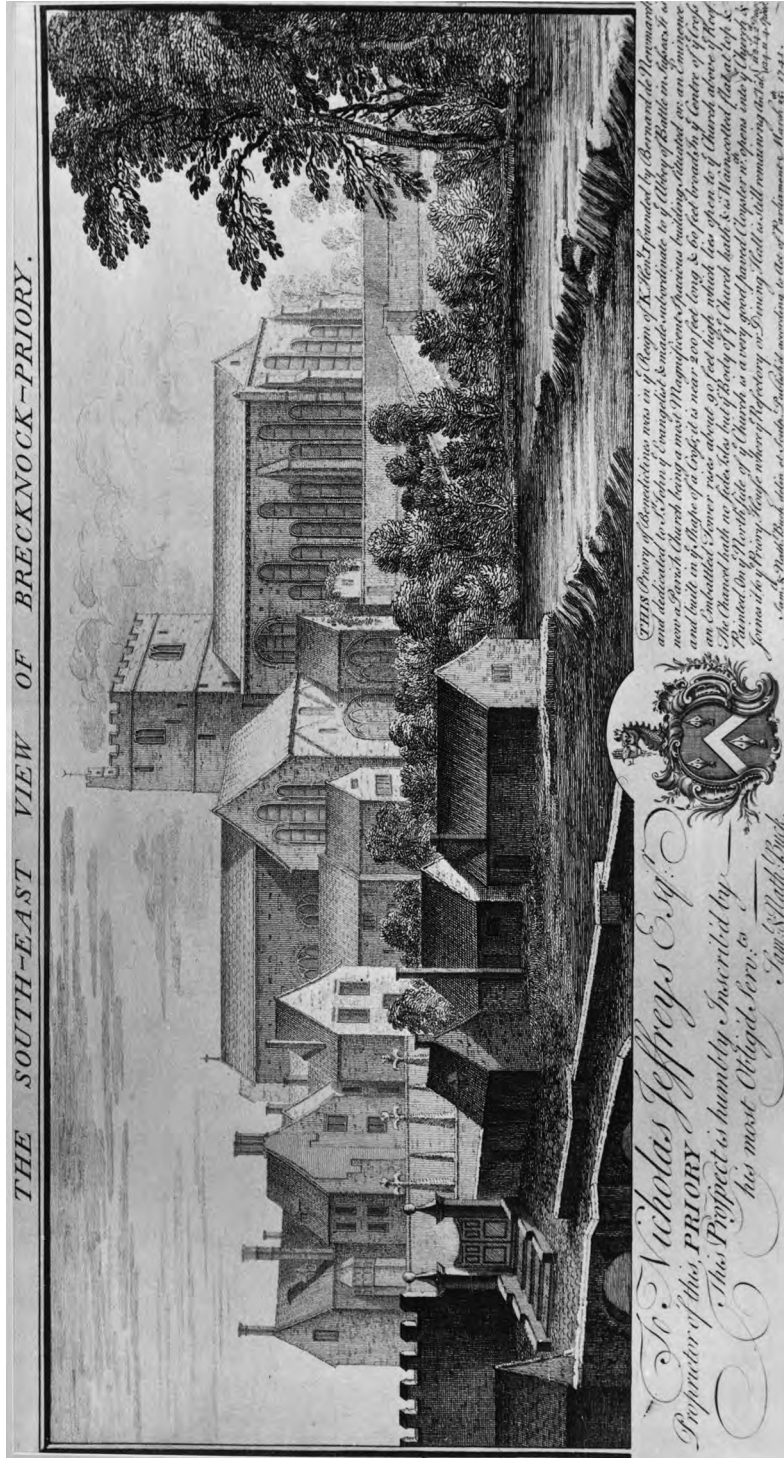 THE SOUTH-EAST VIEW OF BRECKNOCK-PRIORY.
To Nicholas Jeffreys Esqr.
Proprietor of this PRIORY
This Prospect is humbly Inscrib'd by
his most Obliged Servts.
Saml. & Nathl. Buck.
THIS Priory of Benedictines was in ye Reign of K. Hen. 1st founded by Bernard de Newmarch
and dedicated to St. John ye Evangelist & made subordinate to ye Abbey of Battle in Sussex. It is
now a Parish Church being a most Magnificent Spacious building Situated on an Eminence
and built in ye Shape of a Cross; it is near 200 feet long & 60 feet broad. In ye Centre of ye Cross
an Embattled Tower rises about 90 feet high which lies open to ye Church above ye Roof
The Chancel hath no side Isles but ye Body of ye Church hath & a Wainscotted flat
Painted. On ye North side of ye Church is a very good paved Cloyster wch. opens into ye Church &
Joins it to ye Priory House. In ye Refectory or Dining Hall is still remaining